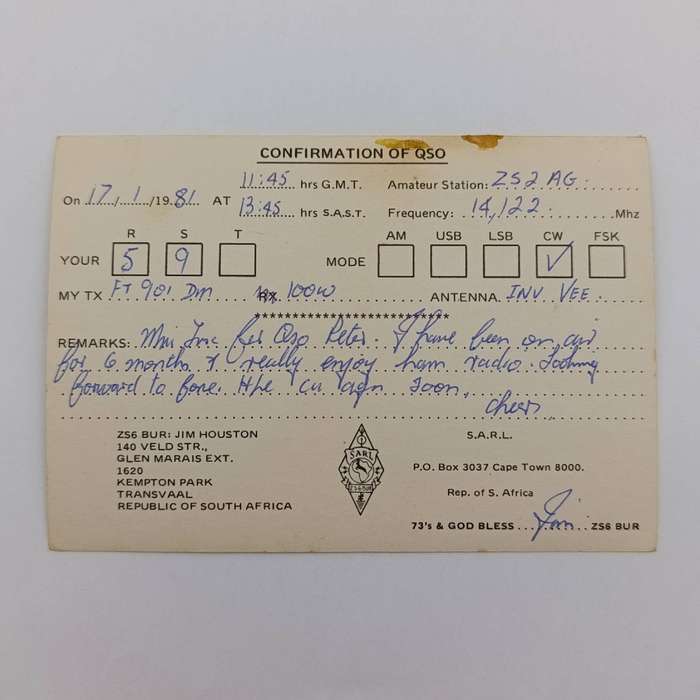 CONFIRMATION OF QSO
On 17/1/1981 AT 11:45 hrs G.M.T. Amateur Station: ZS2 AG
13:45 hrs S.A.S.T. Frequency: 14,122 Mhz
R S T AM USB LSB CW FSK
YOUR 5 9 MODE ✓
MY TX FT 901 DM 100W ANTENNA INV VEE
********************
REMARKS: Tnx fer QSO Peter. I have been on air
for 6 months & really enjoy ham radio. Looking
forward to Hpe cu agn soon.
cheers
ZS6 BUR: JIM HOUSTON
140 VELD STR.,
GLEN MARAIS EXT.
1620
KEMPTON PARK
TRANSVAAL
REPUBLIC OF SOUTH AFRICA
SARL
S.A.R.L.
P.O. Box 3037 Cape Town 8000.
Rep. of S. Africa
73's & GOD BLESS Jim ZS6 BUR